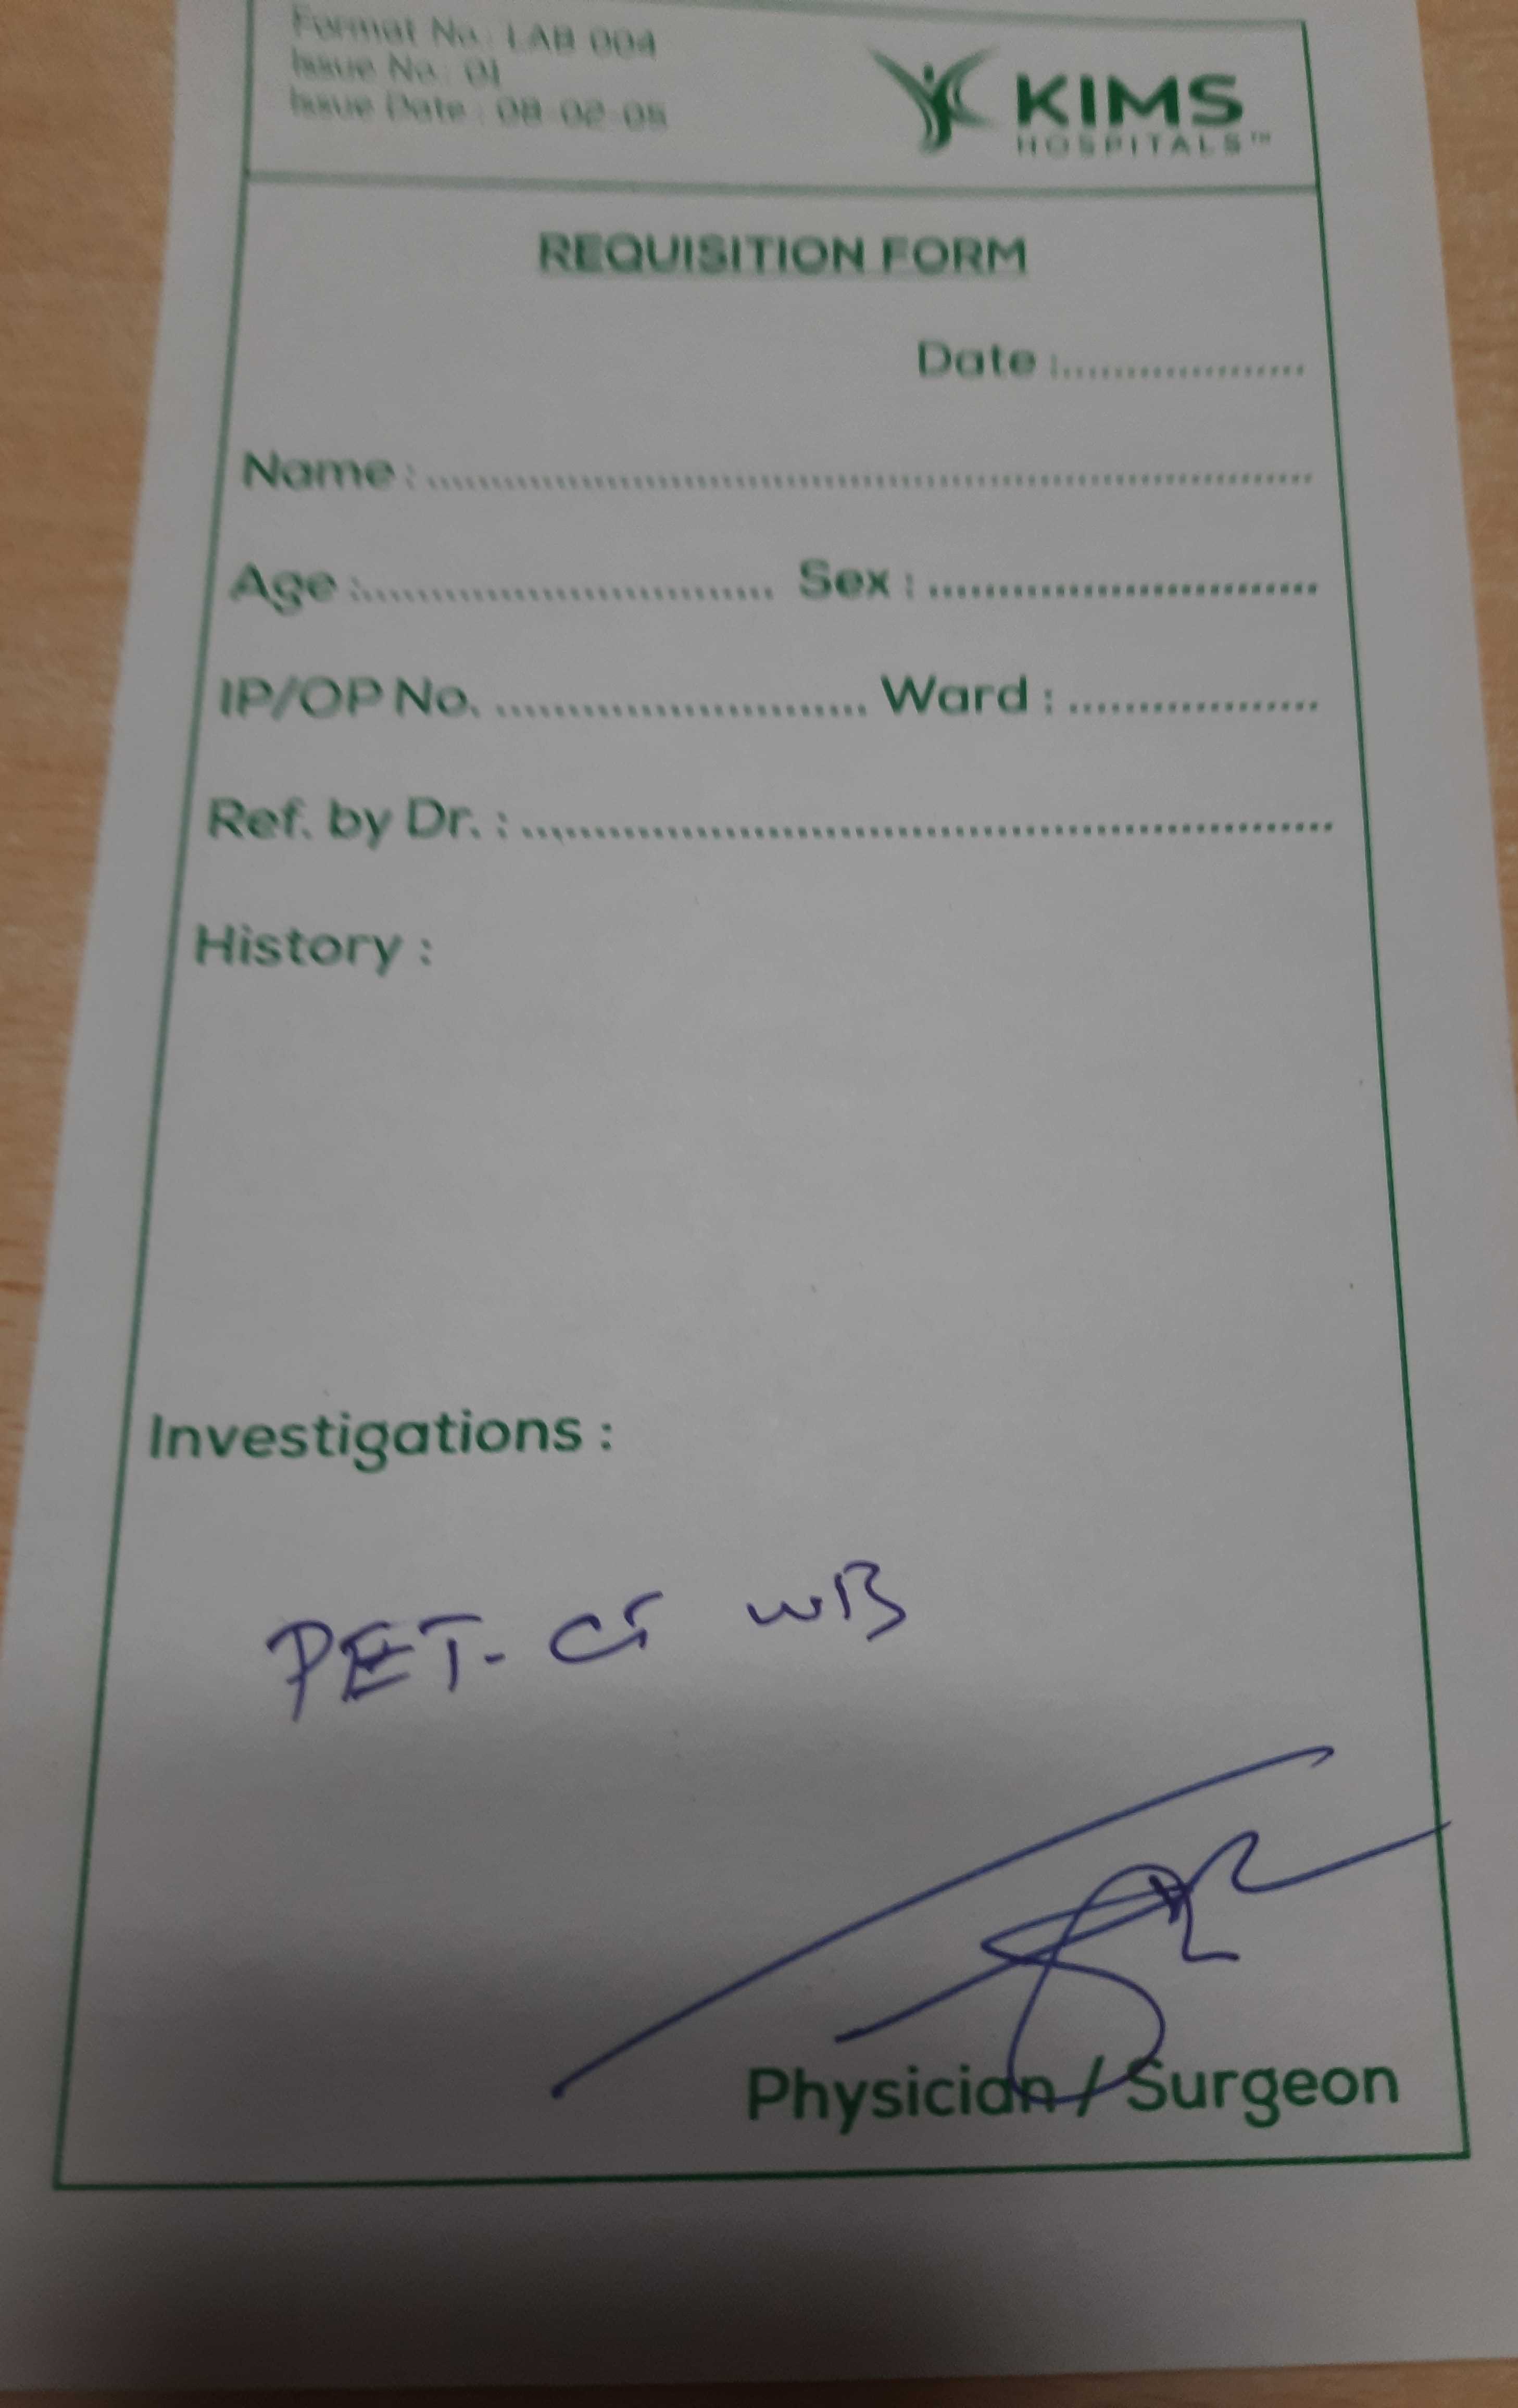 Format No.: LAB 004
Issue No.: 01
Issue Date : 08-02-05
KIMS
HOSPITALS™
REQUISITION FORM
Date :....................
Name :............................................................................
Age :.................................. Sex : .................................
IP/OP No. ................................ Ward : .....................
Ref. by Dr. : .....................................................................
History :
Investigations :
PET-CT WB
Physician / Surgeon